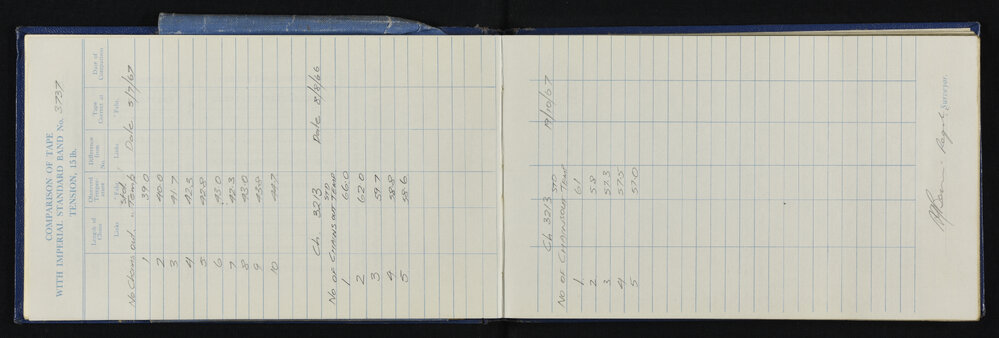 COMPARISON OF TAPE
WITH IMPERIAL STANDARD BAND No. 3737
TENSION, 15 lb.
Length of Chain
Observed Temperature
Difference from No.
Tape Correct at
Date of Comparison
Links
°Fahr.
Links.
°Fahr.
No Chains out. Std Temp Date 5/7/67
1 39.0
2 40.0
3 41.7
4 42.5
5 42.8
6 43.0
7 42.3
8 43.0
9 43.8
10 44.7
Ch. 3213 Date 8/8/66
No OF CHAINS OUT STD TEMP
1 66.0
2 62.0
3 59.7
4 58.8
5 58.6
Ch 3213 17/10/67
No OF CHAINS OUT STD TEMP
1 61
2 58
3 57.3
4 57.5
5 57.0
Surveyor.